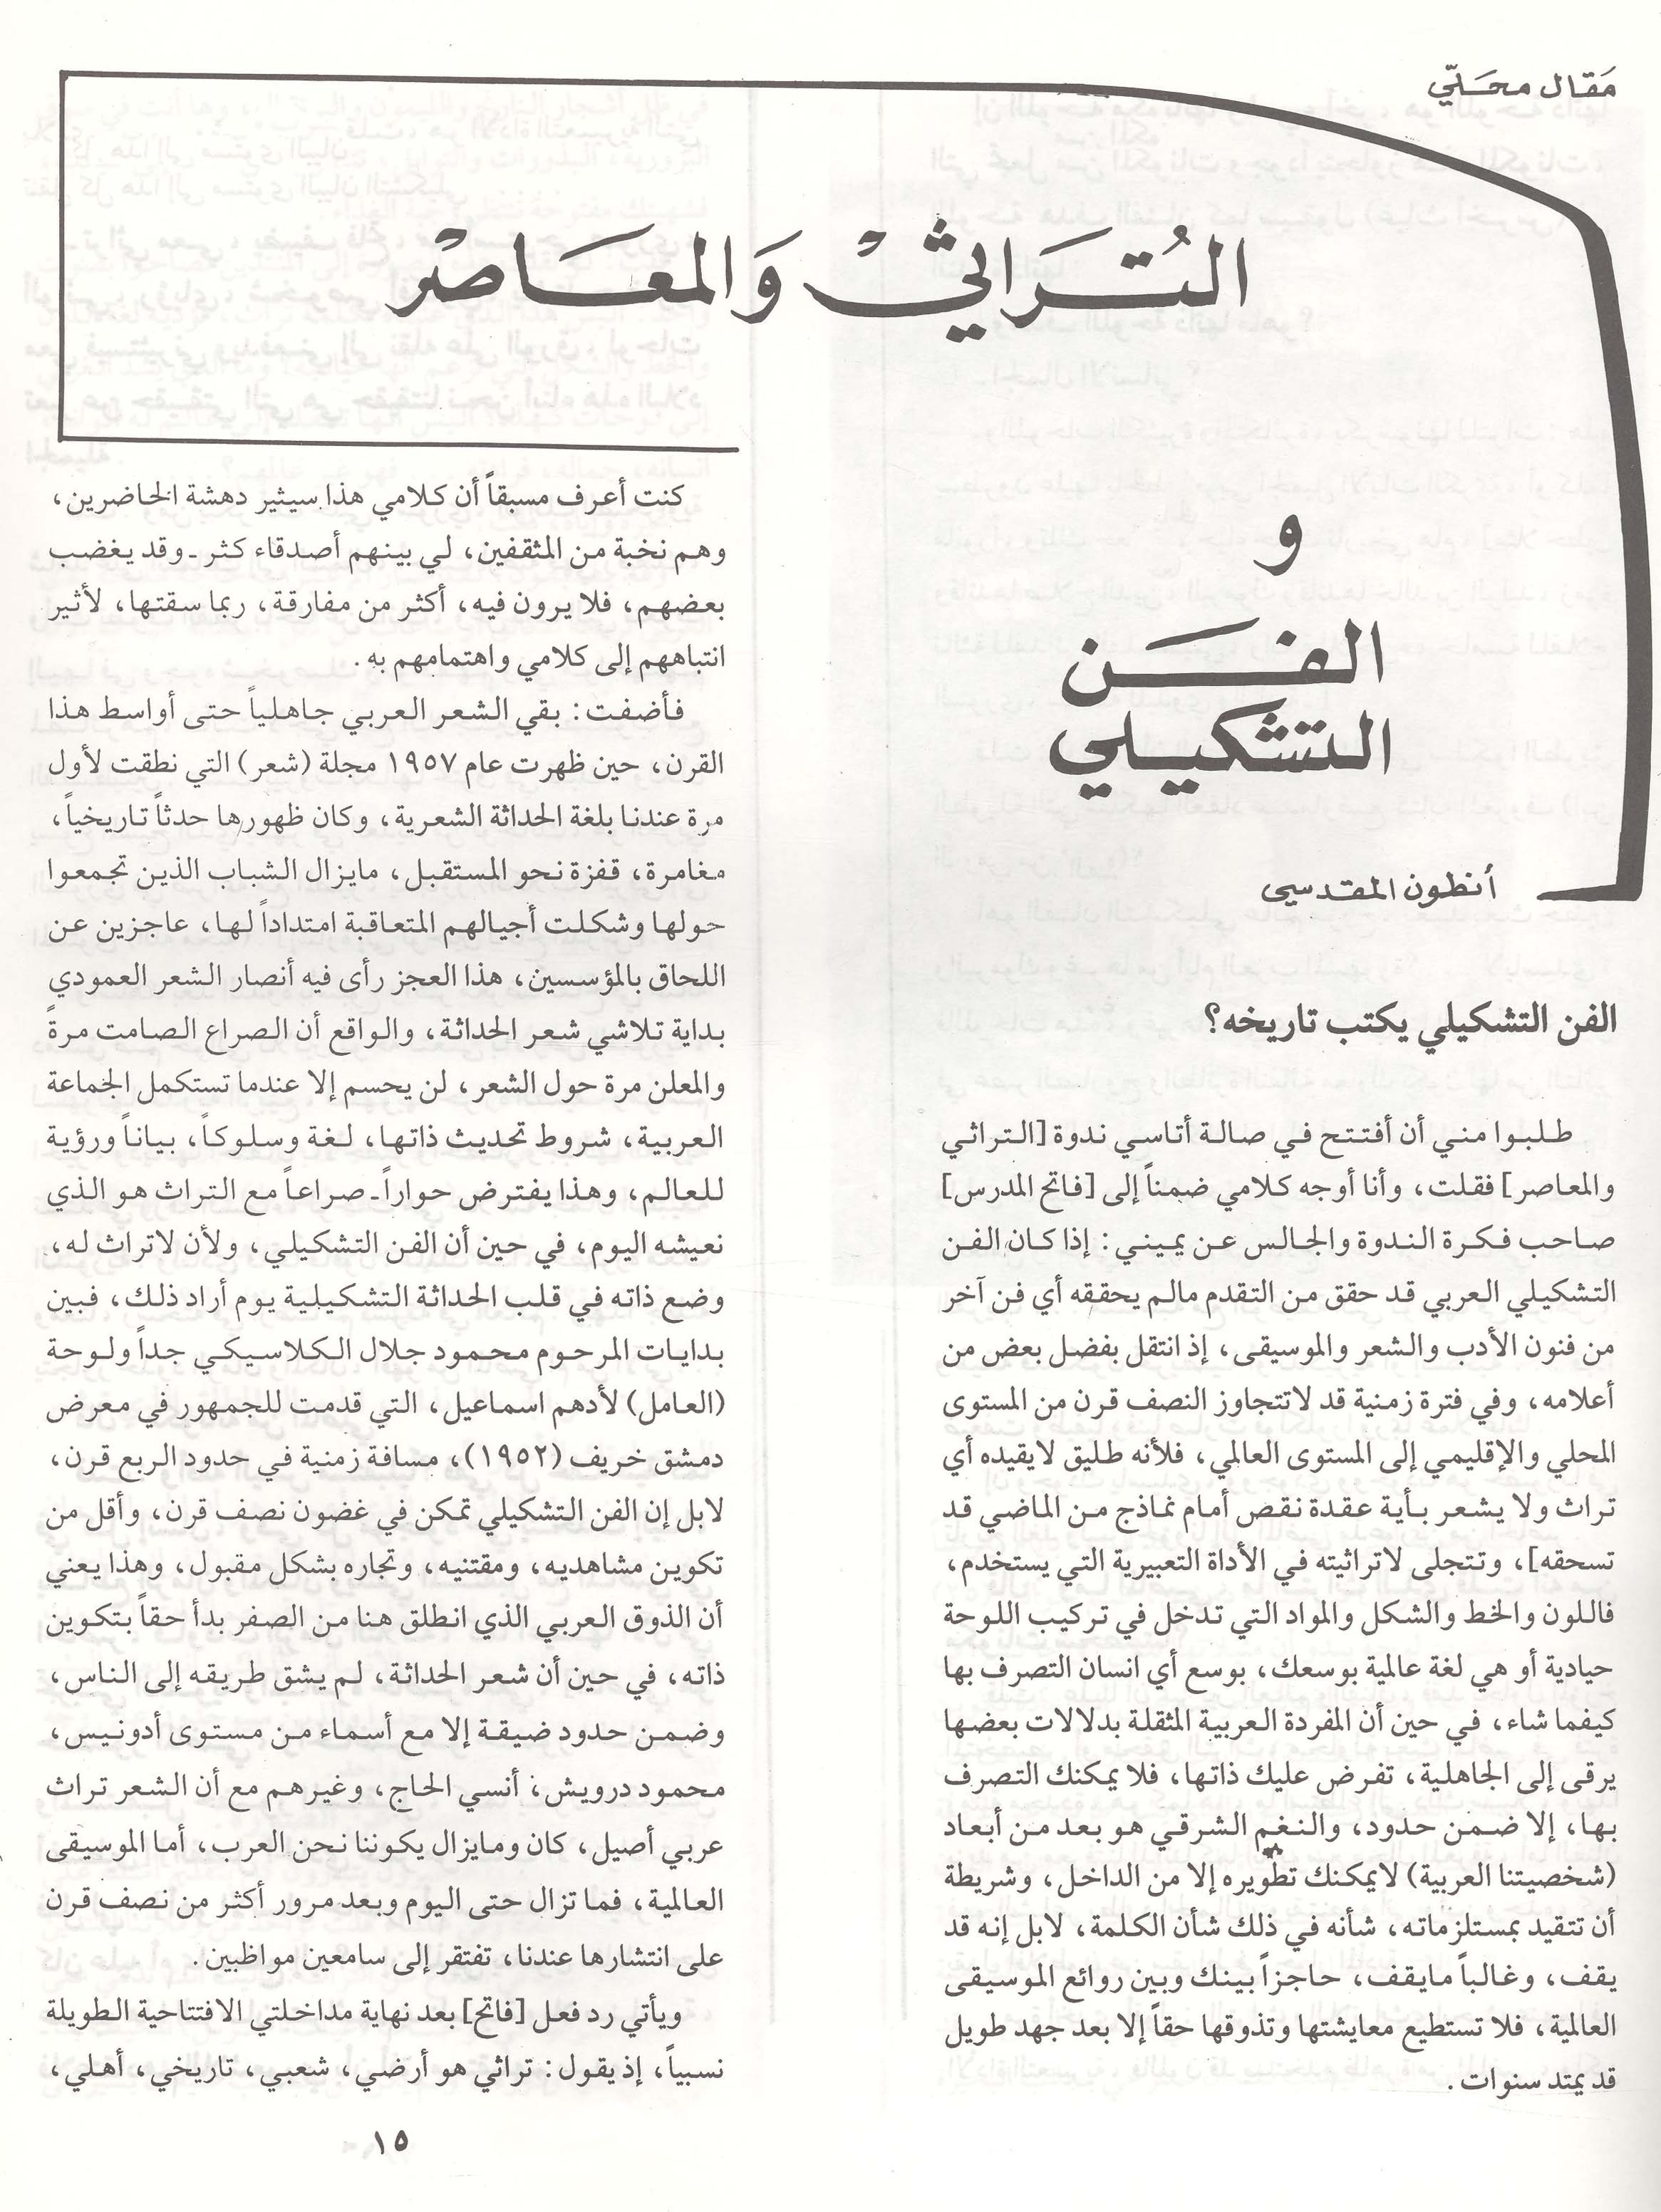 مقال محلي
التراثي والمعاصر
و
الفن
التشكيلي
أنطون المقدسي
الفن التشكيلي يكتب تاريخه؟
طلبوا مني أن أفتتح في صالة أتاسي ندوة [التراثي
والمعاصر] فقلت، وأنا أوجه كلامي ضمناً إلى [فاتح المدرس]
صاحب فكرة الندوة والجالس عن يميني: إذا كان الفن
التشكيلي العربي قد حقق من التقدم مالم يحققه أي فن آخر
من فنون الأدب والشعر والموسيقى، إذ انتقل بفضل بعض من
أعلامه، وفي فترة زمنية قد لاتتجاوز النصف قرن من المستوى
المحلي والإقليمي إلى المستوى العالمي، فلأنه طليق لايقيده أي
تراث ولا يشعر بأية عقدة نقص أمام نماذج من الماضي قد
تسحقه]، وتتجلى لاتراثيته في الأداة التعبيرية التي يستخدم،
فاللون والخط والشكل والمواد التي تدخل في تركيب اللوحة
حيادية أو هي لغة عالمية بوسعك، بوسع أي انسان التصرف بها
كيفما شاء، في حين أن المفردة العربية المثقلة بدلالات بعضها
يرقى إلى الجاهلية، تفرض عليك ذاتها، فلا يمكنك التصرف
بها، إلا ضمن حدود، والنغم الشرقي هو بعد من أبعاد
(شخصيتنا العربية) لايمكنك تطويره إلا من الداخل، وشريطة
أن تتقيد بمستلزماته، شأنه في ذلك شأن الكلمة، لابل إنه قد
يقف، وغالباً مايقف، حاجزاً بينك وبين روائع الموسيقى
العالمية، فلا تستطيع معايشتها وتذوقها حقاً إلا بعد جهد طويل
قد يمتد سنوات.
كنت أعرف مسبقاً أن كلامي هذا سيثير دهشة الحاضرين،
وهم نخبة من المثقفين، لي بينهم أصدقاء كثر ـ وقد يغضب
بعضهم، فلا يرون فيه، أكثر من مفارقة، ربما سقتها، لأثير
انتباههم إلى كلامي واهتمامهم به.
فأضفت: بقي الشعر العربي جاهلياً حتى أواسط هذا
القرن، حين ظهرت عام ١٩٥٧ مجلة (شعر) التي نطقت لأول
مرة عندنا بلغة الحداثة الشعرية، وكان ظهورها حدثاً تاريخياً،
مغامرة، قفزة نحو المستقبل، مايزال الشباب الذين تجمعوا
حولها وشكلت أجيالهم المتعاقبة امتداداً لها، عاجزين عن
اللحاق بالمؤسسين، هذا العجز رأى فيه أنصار الشعر العمودي
بداية تلاشي شعر الحداثة، والواقع أن الصراع الصامت مرةً
والمعلن مرة حول الشعر، لن يحسم إلا عندما تستكمل الجماعة
العربية، شروط تحديث ذاتها، لغة وسلوكاً، بياناً ورؤية
للعالم، وهذا يفترض حواراً ـ صراعاً مع التراث هو الذي
نعيشه اليوم، في حين أن الفن التشكيلي، ولأن لاتراث له،
وضع ذاته في قلب الحداثة التشكيلية يوم أراد ذلك، فبين
بدايات المرحوم محمود جلال الكلاسيكي جداً ولوحة
(العامل) لأدهم اسماعيل، التي قدمت للجمهور في معرض
دمشق خريف (١٩٥٢)، مسافة زمنية في حدود الربع قرن،
لابل إن الفن التشكيلي تمكن في غضون نصف قرن، وأقل من
تكوين مشاهديه، ومقتنيه، وتجاره بشكل مقبول، وهذا يعني
أن الذوق العربي الذي انطلق هنا من الصفر بدأ حقاً بتكوين
ذاته، في حين أن شعر الحداثة، لم يشق طريقه إلى الناس،
وضمن حدود ضيقة إلا مع أسماء من مستوى أدونيس،
محمود درويش، أنسي الحاج، وغيرهم مع أن الشعر تراث
عربي أصيل، كان ومايزال يكوننا نحن العرب، أما الموسيقى
العالمية، فما تزال حتى اليوم وبعد مرور أكثر من نصف قرن
على انتشارها عندنا، تفتقر إلى سامعين مواظبين.
ويأتي رد فعل [فاتح] بعد نهاية مداخلتي الافتتاحية الطويلة
نسبياً، إذ يقول: تراثي هو أرضي، شعبي، تاريخي، أهلي،
١٥